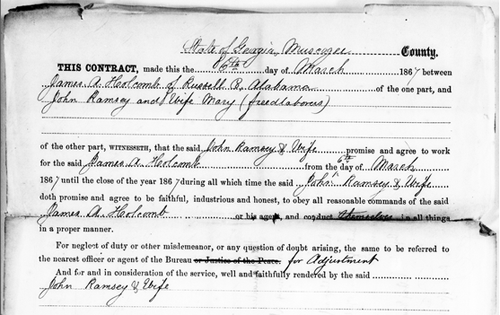 State of Georgia, Muscogee County.
THIS CONTRACT, made this the 6th day of March 1867 between
James A. Holcomb of Russell Co, Alabama of the one part, and
John Ramsey and Wife Mary (freedlabores)
of the other part, WITNESSETH, that the said John Ramsey & Wife promise and agree to work
for the said James A. Holcomb from the 6th day of March
1867 until the close of the year 1867 during all which time the said John Ramsey & Wife
doth promise and agree to be faithful, industrious and honest, to obey all reasonable commands of the said
James A. Holcomb or his agent, and conduct themselves in all things
in a proper manner.
For neglect of duty or other misdemeanor, or any question of doubt arising, the same to be referred to
the nearest officer or agent of the Bureau or Justice of the Peace. for Adjustment
And for and in consideration of the service, well and faithfully rendered by the said
John Ramsey & Wife